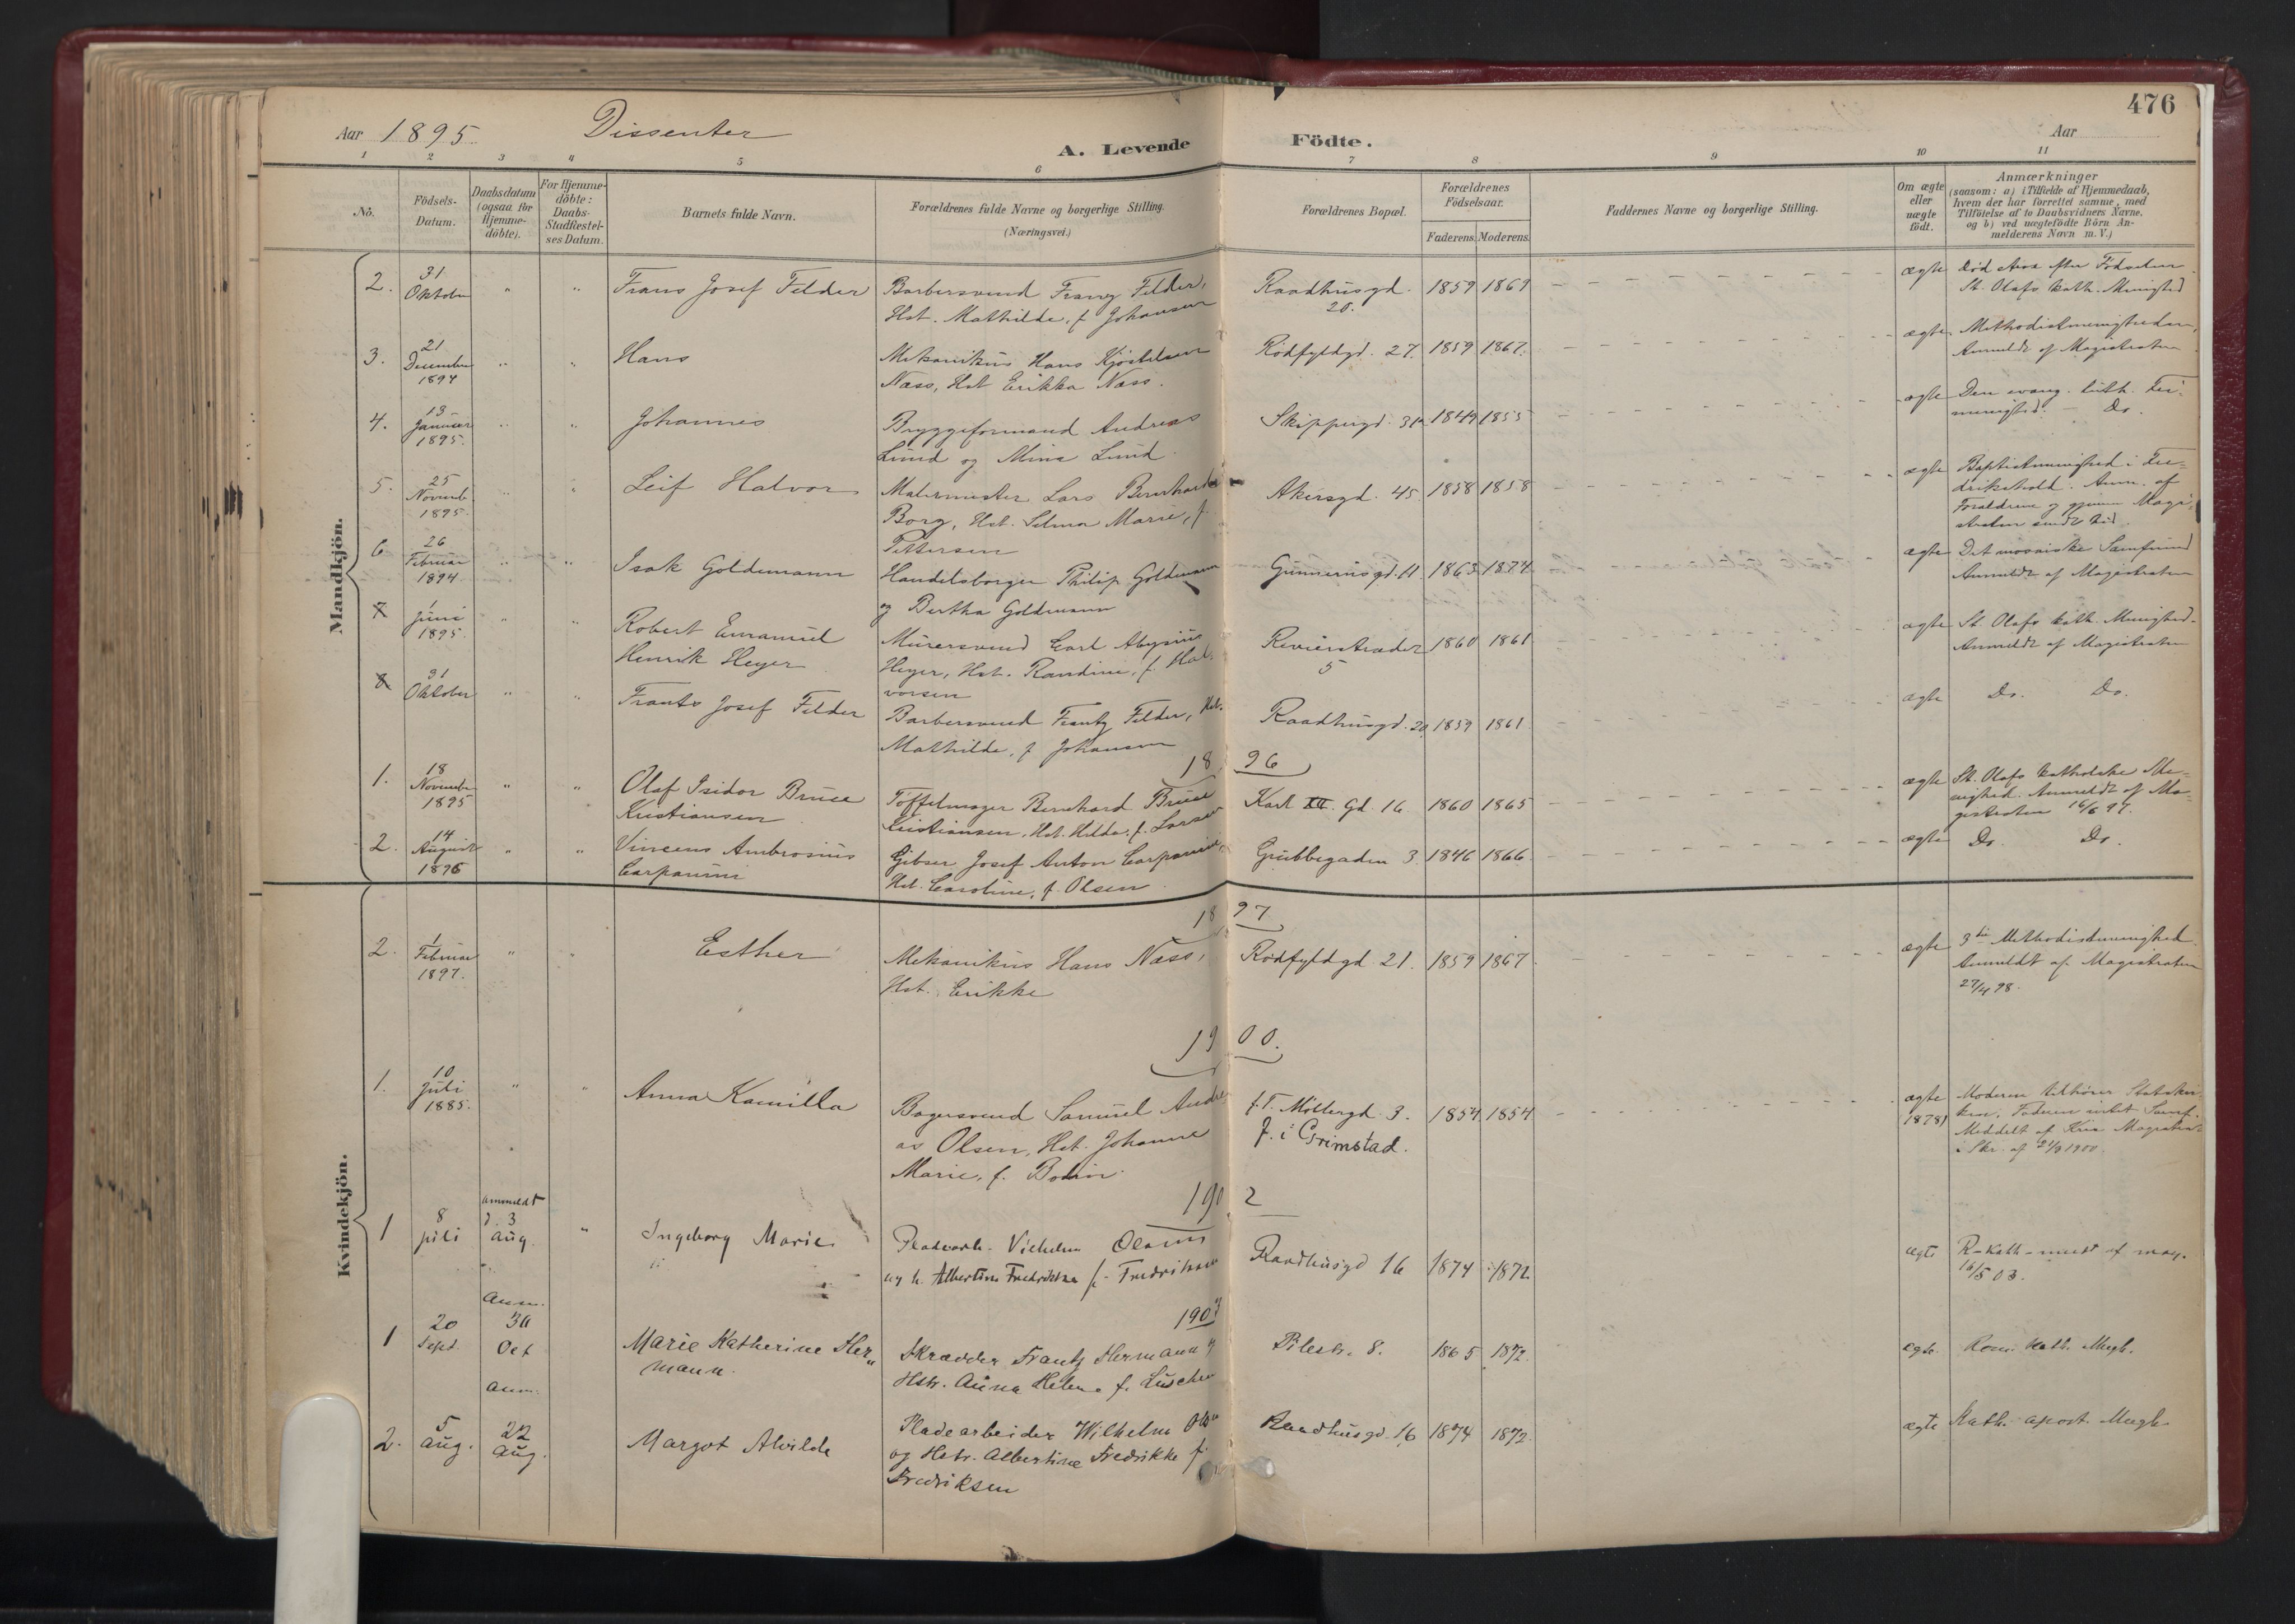 476
Aar 1895. Dissenter
A. Levende Födte.
Aar
1 2 3 4 5 6 7 8 9 10 11
Nö.
Födsels-
Datum.
Daabsdatum
(ogsaa for
Hjemme-
döbte).
For Hjemme-
döbte:
Daabs-
Stadfæstel-
ses Datum.
Barnets fulde Navn.
Forældrenes fulde Navne og borgerlige Stilling.
(Næringsvei.)
Forældrenes Bopæl.
Forældrenes
Födselsaar.
Faderens. Moderens.
Faddernes Navne og borgerlige Stilling.
Om ægte
eller
uægte
födt.
Anmærkninger
(saasom: a) i Tilfælde af Hjemmedaab,
hvem der har forrettet samme, med
Tilföielse af to Daabsvidners Navne.
og b) ved uægtefödte Börn An-
melderens Navn m. V.)
Mandkjön.
2. 31 Oktober " " Frans Josef Felder
Barbersvend Franz Felder,
Hst. Mathilde, f. Johansen
Raadhusgd.
20.
1859 1869 ægte
St. Olafs kath. Menighed
3. 21 December 1894 " " Hans
Mekanikus Hans
Næss, Hst Erikka Næss.
Rödfyldgd. 27. 1859 1867. ægte
Methodistmenigheden,
Anmeldt af Magistraten
4. 13 Januar 1895. " " Johannes
Bryggeformand Andreas
Lund og Mina Lund
Skippergd. 1849 1855 ægte
Den evang. luth. Fri-
menighed. - Do.
5. 25 Novemb. 1895. " " Leif Halvor
Malermester Lars Bernhard
Borg, Hst. Selma Marie, f.
Pettersen
Akersgd. 45 1858 1858 ægte
Baptistmenighed i Fre-
drikshald. Anm. af
Forældrene og gjennem Magi-
straten sendt hid.
6 26 Februar 1894 " " Isak Goldemann
Handelsborger Philip Goldmann
og Bertha Goldmann
Gunnerusgd. 11. 1863 1874 ægte
Det mosaiske Samfund
Anmeldt af Magistraten
7 1 Juni 1895. " " Robert Emanuel
Henrik Heyer
Murersvend Carl
Heyer, Hst. Randine, f. Hal-
vorsen
Revierstrædet
5
1860 1861 ægte
St. Olafs kath. Menighed.
Anmeldt af Magistraten
8 31 Oktober " " Frants Josef Felder
Barbersvend Frantz Felder, Hst.
Mathilde, f. Johansen
Raadhusgd. 20 1859 1861 ægte Do. Do.
1896
1. 18 Novembr 1895 " " Olaf Isidor Bruce
Kristiansen
Töffelmager Bernhard Bruce
Kristiansen, Hst. Hilda, f. Larsen
Karl XII. Gd. 16 1860 1865 ægte
St. Olafs katholske Me-
nighed. Anmeldt af Ma-
gistraten 16/6 97.
2. 14 August 1896 " " Vincens Ambrosius
Carpanini
Gibser Josef Anton Carpanini,
Hst. Caroline, f. Olsen
Grubbegaden 3. 1846 1866 ægte Do. Do.
Kvindekjön.
1897
2. 1 Februar 1897. " " Esther
Mekanikus Hans Næss,
Hst. Erikke
Rödfyldgd 21. 1859 1867. ægte
3die Methodistmenighed
Anmeldt af Magistraten
27/4 98.
1900.
1. 10 Juli 1885. " " Anna Kamilla
Bagersvend Samuel Andre
as Olsen, Hst. Johanne
Marie, f. Bodin.
f.T. Möllergd. 3.
f. i Grimstad.
1854 1854 ægte
(1878)
Moderen tilhörer Statskir-
ken, Faderen intet Samf.
Meddelt af Kria Magistrat
i Skr. af 21/9 1900.
1902
1 8 juli anmeldt d. 3 Aug " Ingeborg Marie
Pladearb. Vilhelm Olsen
og h. Albertine Fredrikke f. Fredriksen
Raadhusgd 16 1874 1872 ægte
R-kath-meldt af mag.
16/5 03.
1903
1 20 Sept. Anm. 30 Oct Marie Katherine Her„
mann.
Skrædder Frantz Hermann og
Hstr. Anna Helene f. Luscher
Pilestr. 8. 1865 1872. ægte. Rom. Kath. Mngh.
2. 5 Aug. Anm. 22 Aug. Margot Alvilde
Pladearbeider Wilhelm Olsn
og Hstr. Albertine Fredrikke f.
Fredriksen
Raadhusgd. 16 1874 1872. ægte Kath. apost. Mngh.